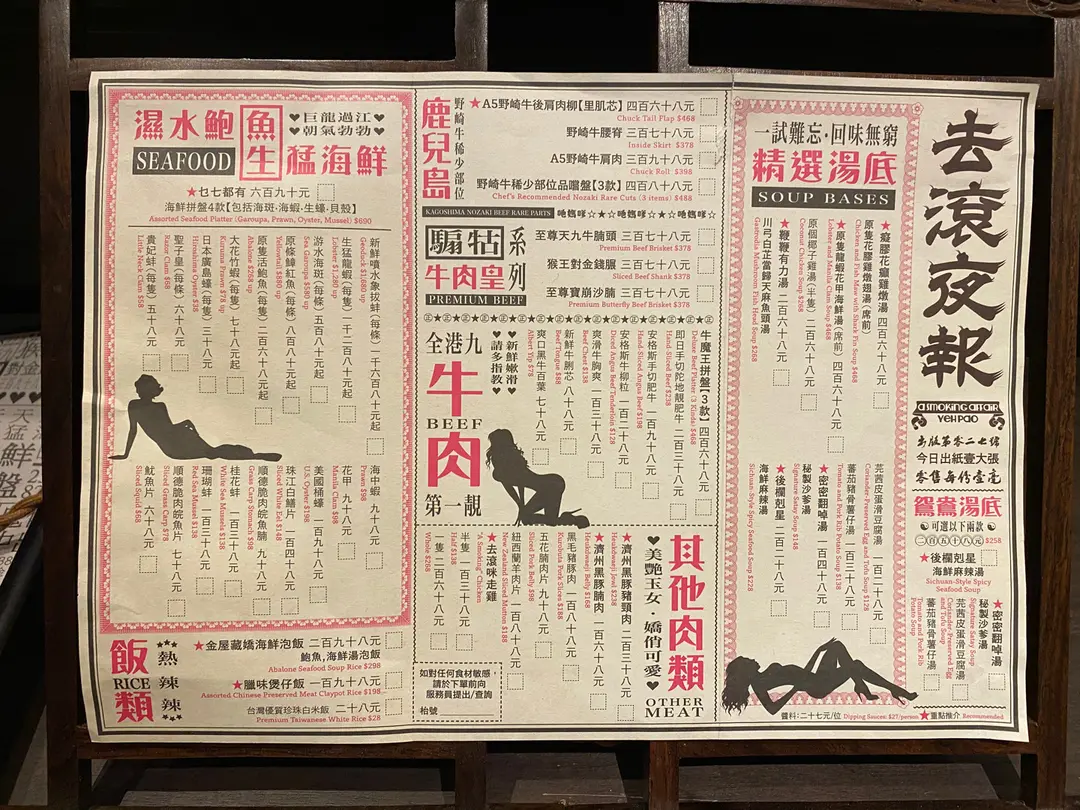 去滾夜報
A SMOKING AFFAIR
YEH PAO
出版第零二七結
今日出紙壹大張
零售每份壹毫
鴛鴦湯底
可選以下兩款
二百五十八元 $258
★後欄剋星
海鮮麻辣湯
Sichuan-Style Spicy
Seafood Soup
★密密翻啅湯
秘製沙爹湯
Signature Satay Soup
芫茜皮蛋滑豆腐湯
Coriander-Preserved Egg
and Tofu Soup
蕃茄豬骨薯仔湯
Tomato and Pork Rib
Potato Soup
一試難忘·回味無窮
精選湯底
SOUP BASES
★癡膠花癲雞燉湯 四百六十八元
原隻花膠雞燉翅湯(席前)
Chicken and Fish Maw with Shark Fin Soup $468
★原隻龍蝦花甲海鮮湯(席前) 四百六十八元
Lobster and Manila Clam Soup $468
原個椰子雞湯(半隻) 二百六十八元
Coconut Chicken Soup $268
★鞭鞭有力湯 二百六十八元
川弓白芷當歸天麻魚頭湯
Gastrodia Menhonum Fish Head Soup $268
芫茜皮蛋滑豆腐湯 一百二十八元
Coriander-Preserved Egg and Tofu Soup $128
蕃茄豬骨薯仔湯 一百三十八元
Tomato and Pork Rib Potato Soup $138
★密密翻啅湯 一百四十八元
秘製沙爹湯
Signature Satay Soup $148
★後欄剋星 二百二十八元
海鮮麻辣湯
Sichuan-Style Spicy Seafood Soup $228
醬料:二十七元/位 Dipping Sauces: $27/person ★重點推介 Recommended
鹿兒島
野崎牛稀少部位
★A5野崎牛後肩肉柳【里肌芯】 四百六十八元
Chuck Tail Flap $468
野崎牛腰脊 三百七十八元
Inside Skirt $378
A5野崎牛肩肉 三百九十八元
Chuck Roll $398
野崎牛稀少部位品嚐盤【3款】 四百八十八元
Chef's Recommended Nozaki Rare Cuts (3 items) $488
KAGOSHIMA NOZAKI BEEF RARE PARTS
騸牯系列
牛肉皇
PREMIUM BEEF
至尊天九牛腩頭 三百七十八元
Premium Beef Brisket $378
猴王對金錢𦟌 三百七十八元
Sliced Beef Shank $378
至尊寶崩沙腩 三百七十八元
Premium Butterfly Beef Brisket $378
全港九
牛肉
BEEF
第一靚
♥新鮮嫩滑♥
♥請多指教♥
牛魔王拼盤【3款】 四百六十八元
Deluxe Beef Platter (3 Kinds) $468
即日手切陀地靚肥牛 二百三十八元
Hand-Sliced Angus Beef $238
安格斯手切肥牛 一百九十八元
Hand-Sliced Angus Beef $198
安格斯牛柳粒 一百二十八元
Diced Angus Beef Tenderloin $128
爽滑牛胸爽 一百三十八元
Beef Chest $138
新鮮牛脷芯 八十八元
Beef Tongue $88
爽口黑牛百葉 七十八元
Albert Yip $78
其他肉類
OTHER
MEAT
♥美艷玉女·嬌俏可愛♥
★濟州黑豚豬頸肉 二百三十八元
Heukdwaeji Jowl $238
★濟州黑豚腩肉 一百六十八元
Heukdwaeji Belly $168
黑毛豬豚肉 一百八十八元
Kurobuta Pork Slices $188
五花腩肉片 九十八元
Sliced Pork Belly $98
紐西蘭羊肉片 一百八十八元
New Zealand Sliced Mutton $188
★去滾咪走雞
"A Smoking" Chicken
半隻 一百三十八元
Half $138
一隻 二百六十八元
Whole $268
如對任何食材敏感,
請於下單前向
服務員提出/查詢
枱號
濕水鮑魚
生猛海鮮
SEAFOOD
♥巨龍過江♥
♥朝氣勃勃♥
★乜七都有 六百九十元
海鮮拼盤4款【包括海斑·海蝦·生蠔·貝殼】
Assorted Seafood Platter (Garoupa, Prawn, Oyster, Mussel) $690
新鮮噴水象拔蚌(每條) 一千六百八十八元起
Geoduck $1,680 up
生猛龍蝦(每隻) 一千二百八十元起
Lobster $1,280 up
游水海斑(每條) 五百八十元起
Sea Garoupa $580 up
原條鰤魚(每條) 八百八十元起
Yellowtail $880 up
原隻活鮑魚(每隻) 二百六十八元起
Abalone $268 up
大花竹蝦(每隻) 七十八元起
Kuruma Prawn $78 up
日本廣島蠔(每隻) 三十八元
Hiroshima Oyster $38
聖子皇(每條) 六十八元
Razor Clam $68
貴妃蚌(每隻) 五十八元
Little Neck Clam $58
海中蝦 九十八元
Prawn $98
花甲 九十八元
Manila Clam $98
美國桶蠔 一百九十八元
U.S. Oyster $198
珠江白鱔片 一百四十八元
Sliced White Eel $148
順德脆肉皖魚腩 九十八元
Grass Carp Stomach $98
桂花蚌 一百三十八元
White Sea Mussels $138
珊瑚蚌 一百三十八元
Red Sea Mussel $138
順德脆肉皖魚片 七十八元
Sliced Grass Carp $78
魷魚片 六十八元
Sliced Squid $68
飯類
RICE
熱辣辣
★金屋藏嬌海鮮泡飯 二百九十八元
鮑魚,海鮮湯泡飯
Abalone Seafood Soup Rice $298
★臘味煲仔飯 一百九十八元
Assorted Chinese Preserved Meat Claypot Rice $198
台灣優質珍珠白米飯 二十八元
Premium Taiwanese White Rice $28